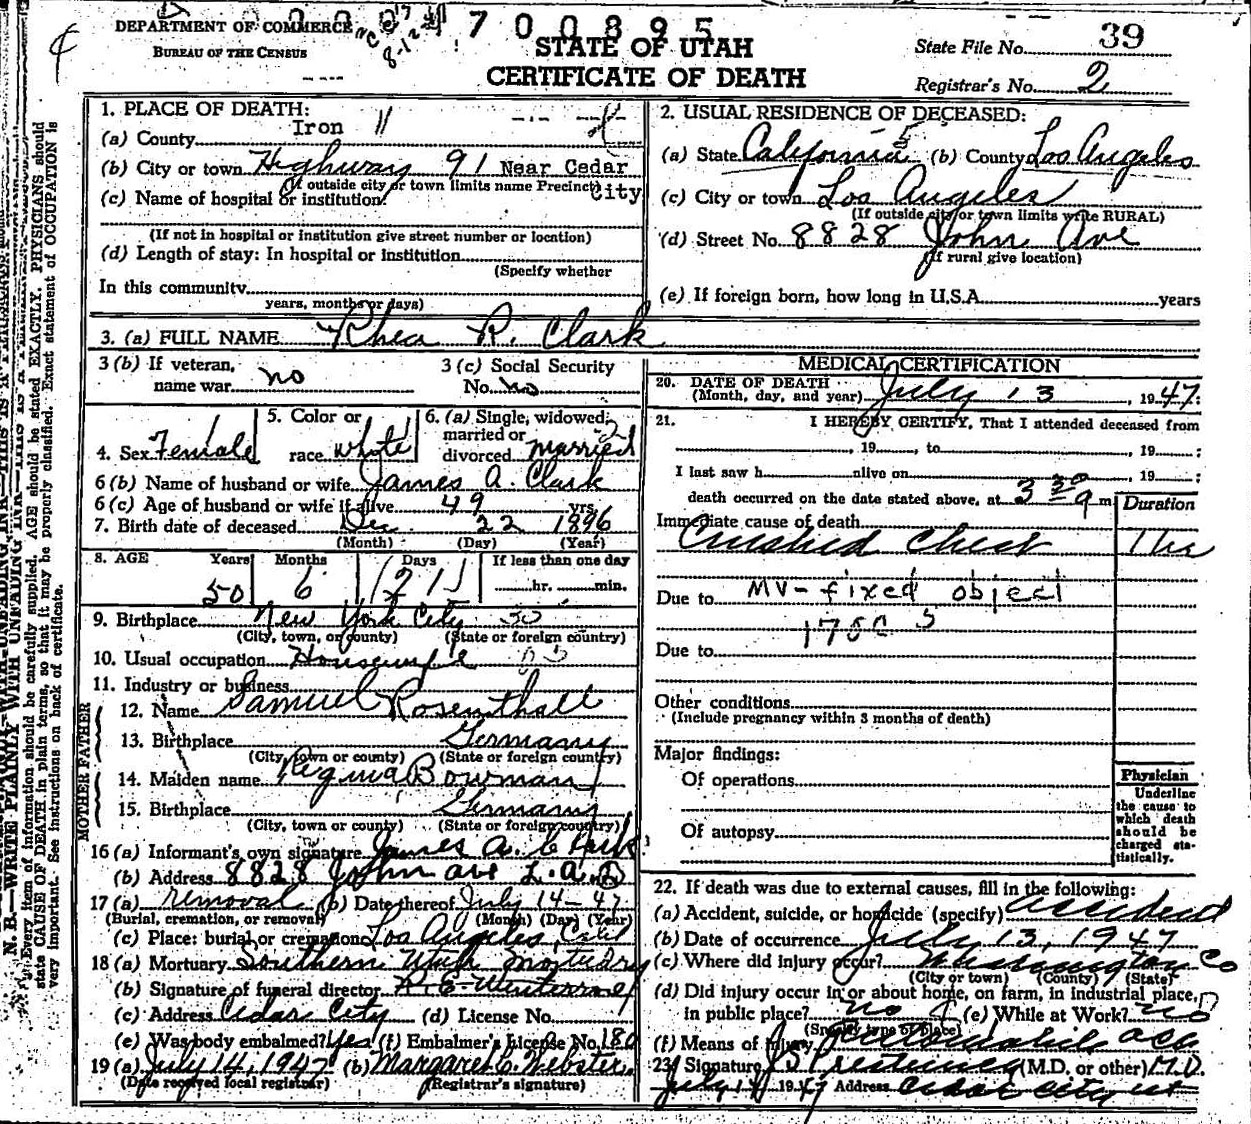 DEPARTMENT OF COMMERCE
BUREAU OF THE CENSUS
700895
STATE OF UTAH
CERTIFICATE OF DEATH
State File No. 39
Registrar's No. 2
1. PLACE OF DEATH:
(a) County Iron 11
(b) City or town Highway 91 Near Cedar City
(If outside city or town limits name Precinct)
(c) Name of hospital or institution:
(If not in hospital or institution give street number or location)
(d) Length of stay: In hospital or institution
(Specify whether
In this community
years, months or days)
2. USUAL RESIDENCE OF DECEASED:
(a) State California (b) County Los Angeles
(c) City or town Los Angeles
(If outside city or town limits write RURAL)
(d) Street No. 8828 John Ave
(If rural give location)
(e) If foreign born, how long in U.S.A. years
3. (a) FULL NAME Rhea R. Clark
3 (b) If veteran, name war no
3 (c) Social Security No. no
4. Sex Female
5. Color or race white
6. (a) Single, widowed, married or divorced married
6 (b) Name of husband or wife James A. Clark
6 (c) Age of husband or wife if alive 49 yrs.
7. Birth date of deceased Dec. 22 1896
(Month) (Day) (Year)
8. AGE Years Months Days If less than one day
50 6 21 hr. min.
9. Birthplace New York City
(City, town, or county) (State or foreign country)
10. Usual occupation Housewife
11. Industry or business
FATHER
12. Name Samuel Rosenthall
13. Birthplace Germany
(City, town or county) (State or foreign country)
MOTHER
14. Maiden name Regina Bowman
15. Birthplace Germany
(City, town or county) (State or foreign country)
16 (a) Informant's own signature James A. Clark
(b) Address 8828 John ave L.A.
17 (a) removal (b) Date thereof July 14-47
(Burial, cremation, or removal) (Month) (Day) (Year)
(c) Place: burial or cremation Los Angeles, Calif
18 (a) Mortuary Southern Utah Mortuary
(b) Signature of funeral director
(c) Address Cedar City (d) License No.
(e) Was body embalmed? Yes (f) Embalmer's License No. 180
19 (a) July 14, 1947 (b) Margaret C. Webster
(Date received local registrar) (Registrar's signature)
MEDICAL CERTIFICATION
20. DATE OF DEATH
(Month, day, and year) July 13, 1947:
21. I HEREBY CERTIFY, That I attended deceased from
, 19 , to , 19 ;
I last saw h alive on , 19 ;
death occurred on the date stated above, at 3 30 a m
Duration
Immediate cause of death
Crushed Chest 1 hr
Due to MV-fixed object
Due to
Other conditions
(Include pregnancy within 3 months of death)
Major findings:
Of operations
Of autopsy
Physician
Underline the cause to which death should be charged statistically.
22. If death was due to external causes, fill in the following:
(a) Accident, suicide, or homicide (specify) accident
(b) Date of occurrence July 13, 1947
(c) Where did injury occur? Washington Co
(City or town) (County) (State)
(d) Did injury occur in or about home, on farm, in industrial place, in public place? no (e) While at Work? no
(Specify type of place)
(f) Means of injury Automobile acc
23 Signature (M.D. or other) M.D.
July 1947 Address Cedar City ut
N. B.—WRITE PLAINLY WITH UNFADING INK—THIS IS A PERMANENT
Every item of information should be carefully supplied. AGE should be stated EXACTLY. PHYSICIANS should
state CAUSE OF DEATH in plain terms, so that it may be properly classified. Exact statement of OCCUPATION is
very important. See instructions on back of certificate.